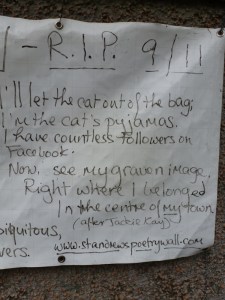 - R.I.P. 9/11
I'll let the cat out of the bag;
I'm the cat's pyjamas.
I have countless followers on
Facebook.
Now, see my graven image.
Right where I belonged
In the centre of my town
(after Jackie Kay)
biquitous,
vers.